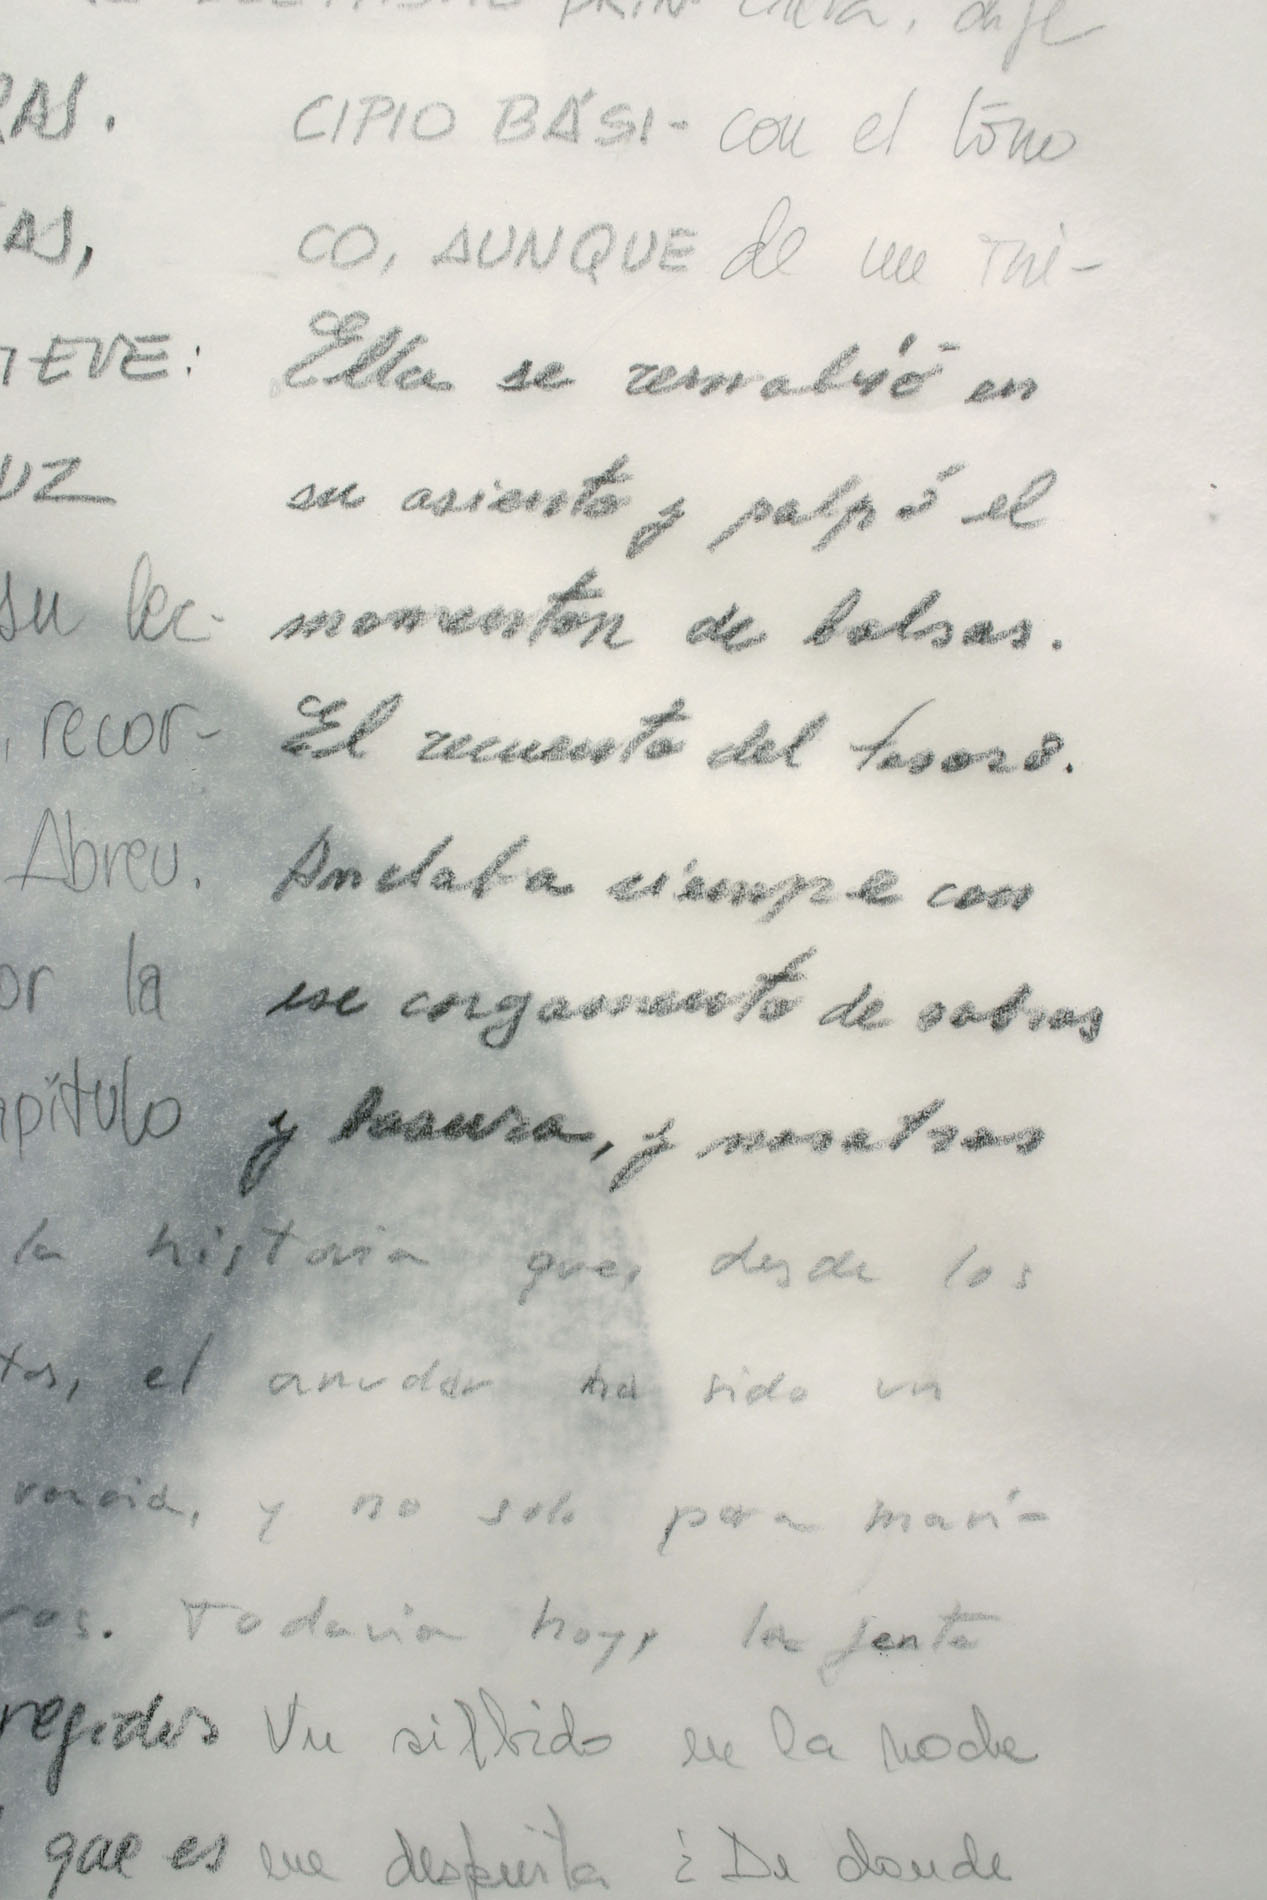 PRIN- dije
RAS. CIPIO BÁSI- con el tono
TAS, CO, AUNQUE de un
IEVE: Ella se removió en
UZ su asiento y palpó el
su lec- momenton de bolsas.
, recor- El recuento del tesoro.
Abreu. Andaba siempre con
or la ese cargamento de sobras
apítulo y basura, y nosotros
la historia que, desde los
tos, el anudar ha sido un
y no solo para marí-
ros. Todavía hoy, la gente
regidos Un silbido en la noche
que es me despierta ¿De donde